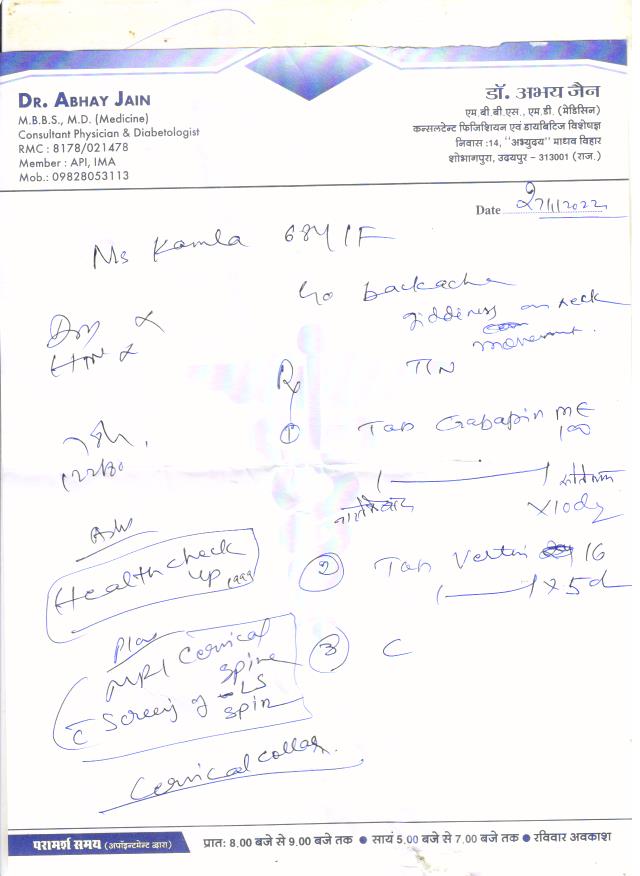 DR. ABHAY JAIN
M.B.B.S., M.D. (Medicine)
Consultant Physician & Diabetologist
RMC : 8178/021478
Member : API, IMA
Mob.: 09828053113
डॉ. अभय जैन
एम.बी.बी.एस., एम.डी. (मेडिसिन)
कन्सलटेन्ट फिजिशियन एवं डायबिटिज विशेषज्ञ
निवास :14, "अभ्युदय" माधव विहार
शोभागपुरा, उदयपुर – 313001 (राज.)
Date 27/1/2022
Ms Kamla 68Y/F
c/o backache
giddiness on neck
movement.
HTN
TLN
Rx
① Tab Gabapin ME
100
X10dy
122/80
Adv
Health check
up 1999
② Tab Vertin 16
x 5d
Plan
MRI Cervical
spine
c Screenig of LS
spin
③ C
Cervical collar.
परामर्श समय (अपॉइन्टमेन्ट द्वारा) प्रातः 8.00 बजे से 9.00 बजे तक ● सायं 5.00 बजे से 7.00 बजे तक ● रविवार अवकाश